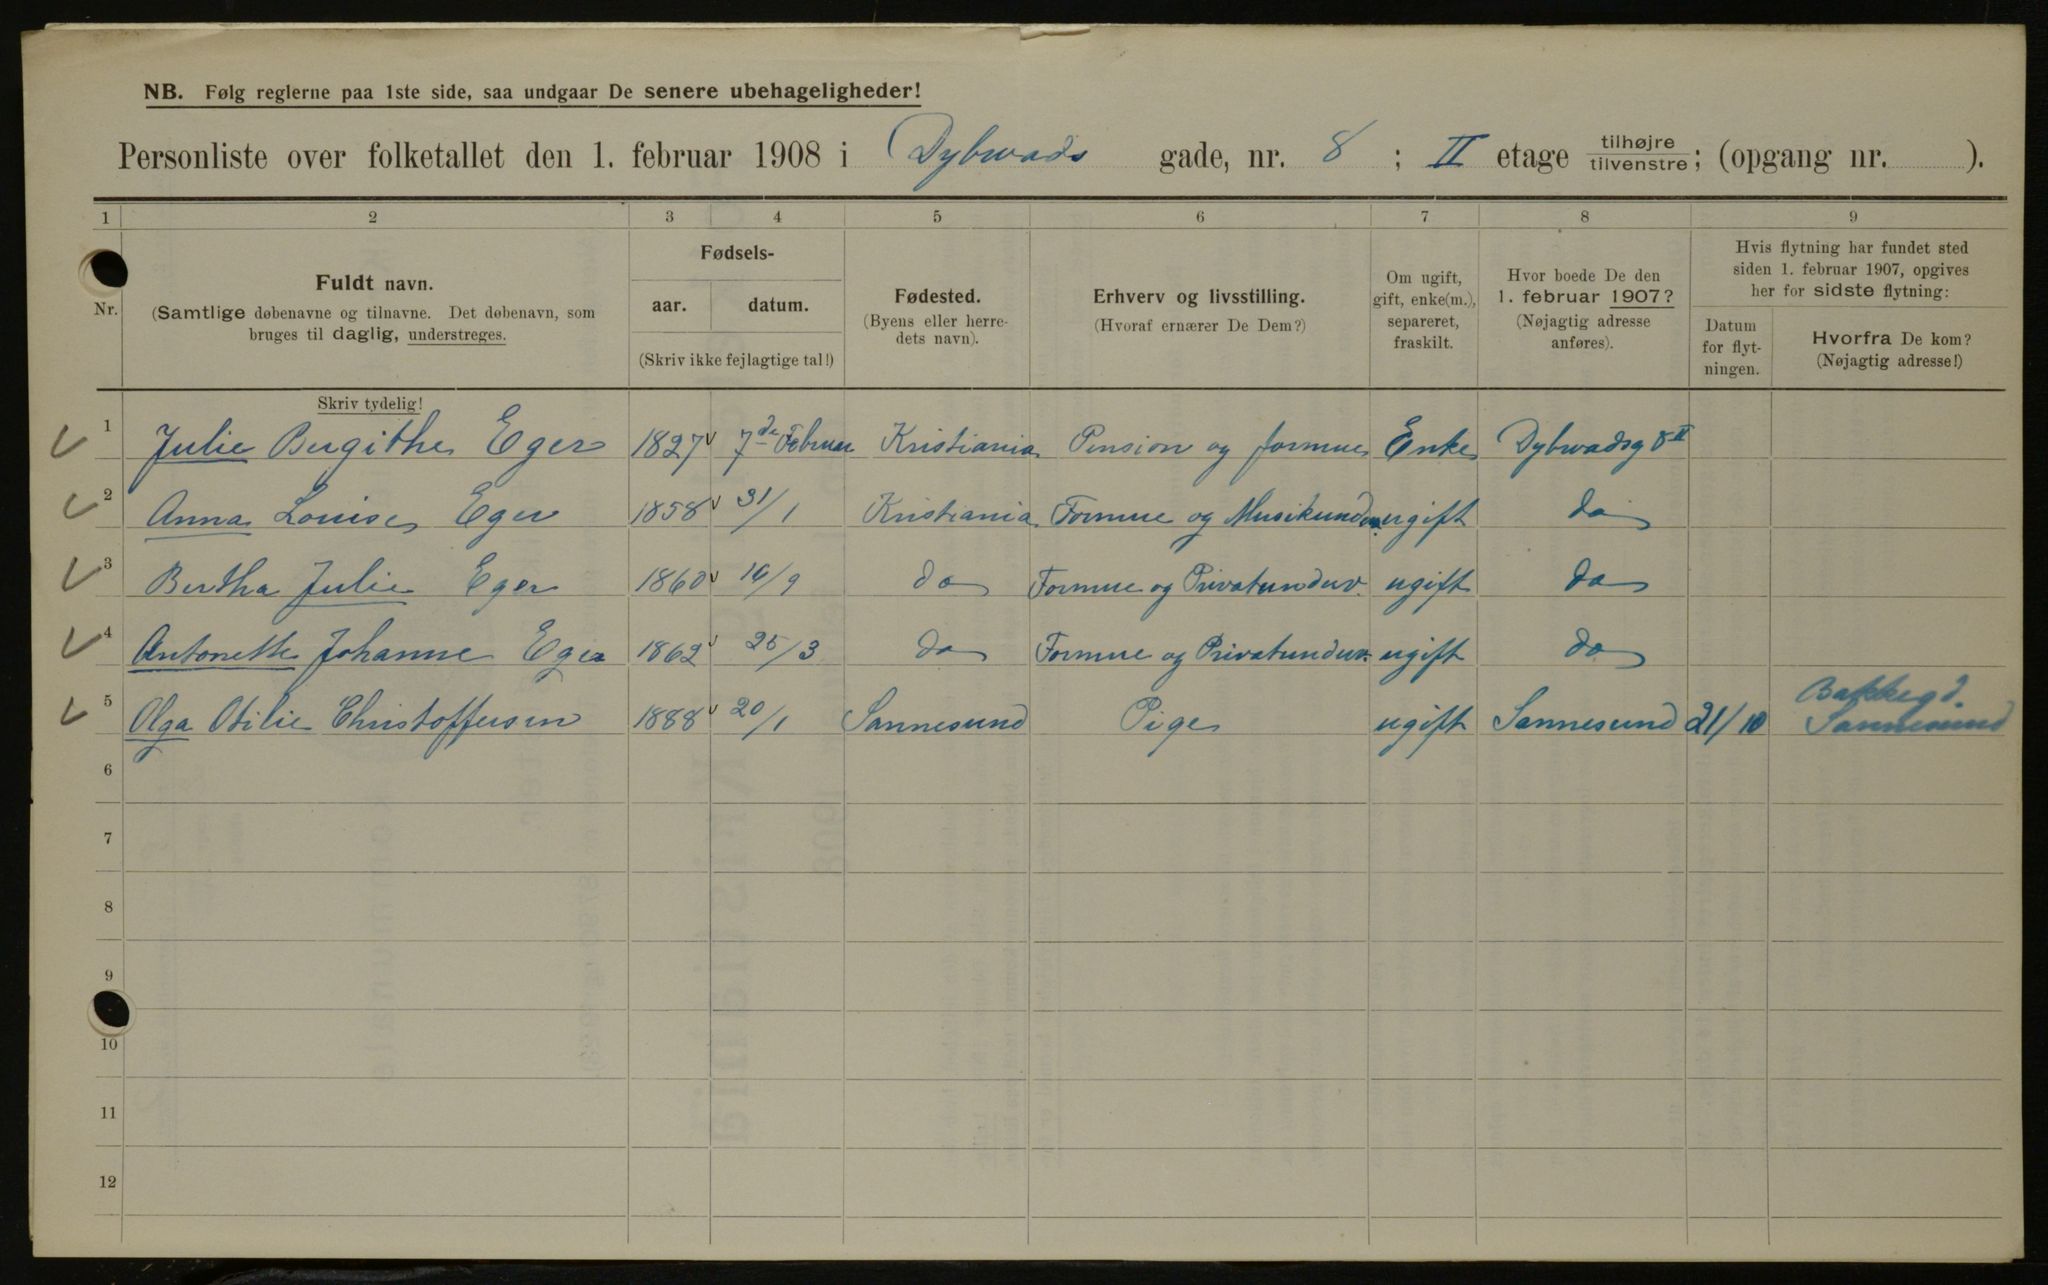 NB. Følg reglerne paa 1ste side, saa undgaar De senere ubehageligheder!
Personliste over folketallet den 1. februar 1908 i Dybwads gade, nr. 8 ; II etage tilhøjre tilvenstre; (opgang nr. ).
1 2 3 4 5 6 7 8 9
Nr.
Fuldt navn.
(Samtlige døbenavne og tilnavne. Det døbenavn, som
bruges til daglig, understreges.
Skriv tydelig!
Fødsels-
aar. datum.
(Skriv ikke fejlagtige tal!)
Fødested.
(Byens eller herre-
dets navn).
Erhverv og livsstilling.
(Hvoraf ernærer De Dem?)
Om ugift,
gift, enke(m.),
separeret,
fraskilt.
Hvor boede De den
1. februar 1907?
(Nøjagtig adresse
anføres).
Hvis flytning har fundet sted
siden 1. februar 1907, opgives
her for sidste flytning:
Datum
for flyt-
ningen.
Hvorfra De kom?
(Nøjagtig adresse!)
1 Julie Bergithe Eger 1827 7de Februar Kristiania Pension og formue Enke Dybwadsg 8 II
2 Anna Louise Eger 1858 31/1 Kristiania Formue og Musikunderv. ugift do
3 Bertha Julie Eger 1860 16/9 do Formue og Privatunderv. ugift do
4 Antonette Johanne Eger 1862 25/3 do Formue og Privatunderv. ugift do
5 Olga Otilie Christoffersen 1888 20/1 Sannesund Pige ugift Sannesund 21/10 Bakkegd. Sannesund
6
7
8
9
10
11
12